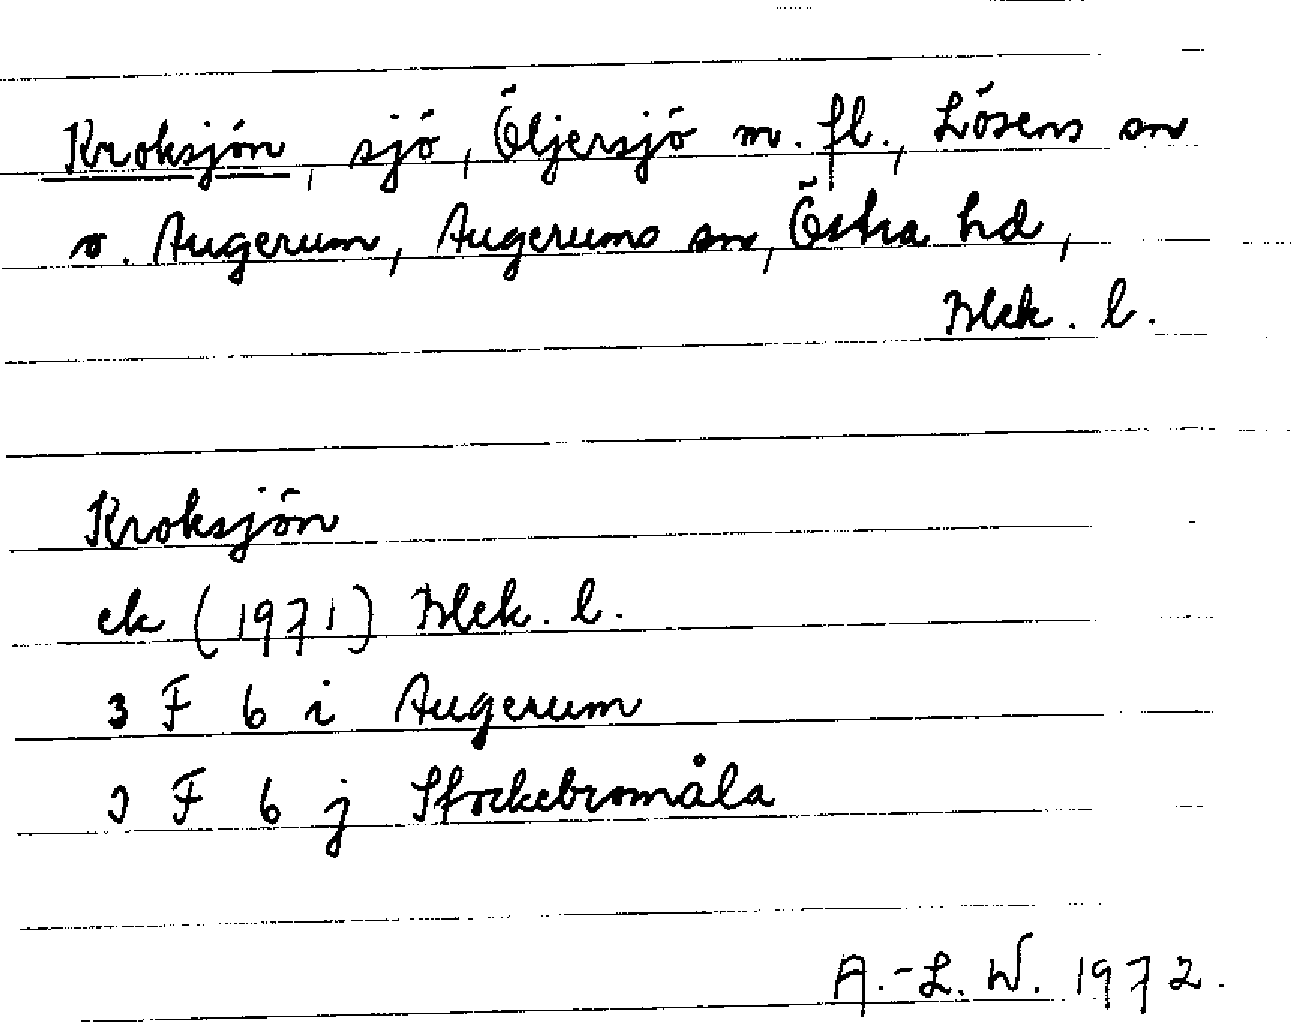 Kroksjön, sjö, Öljersjö m. fl., Lösens sn
o. Augerum, Augerums sn, Östra hd,
Blek. l.
Kroksjön
ek (1971) Blek. l.
3 F 6 i Augerum
3 F 6 j Stockebromåla
A.-L. W. 1972.